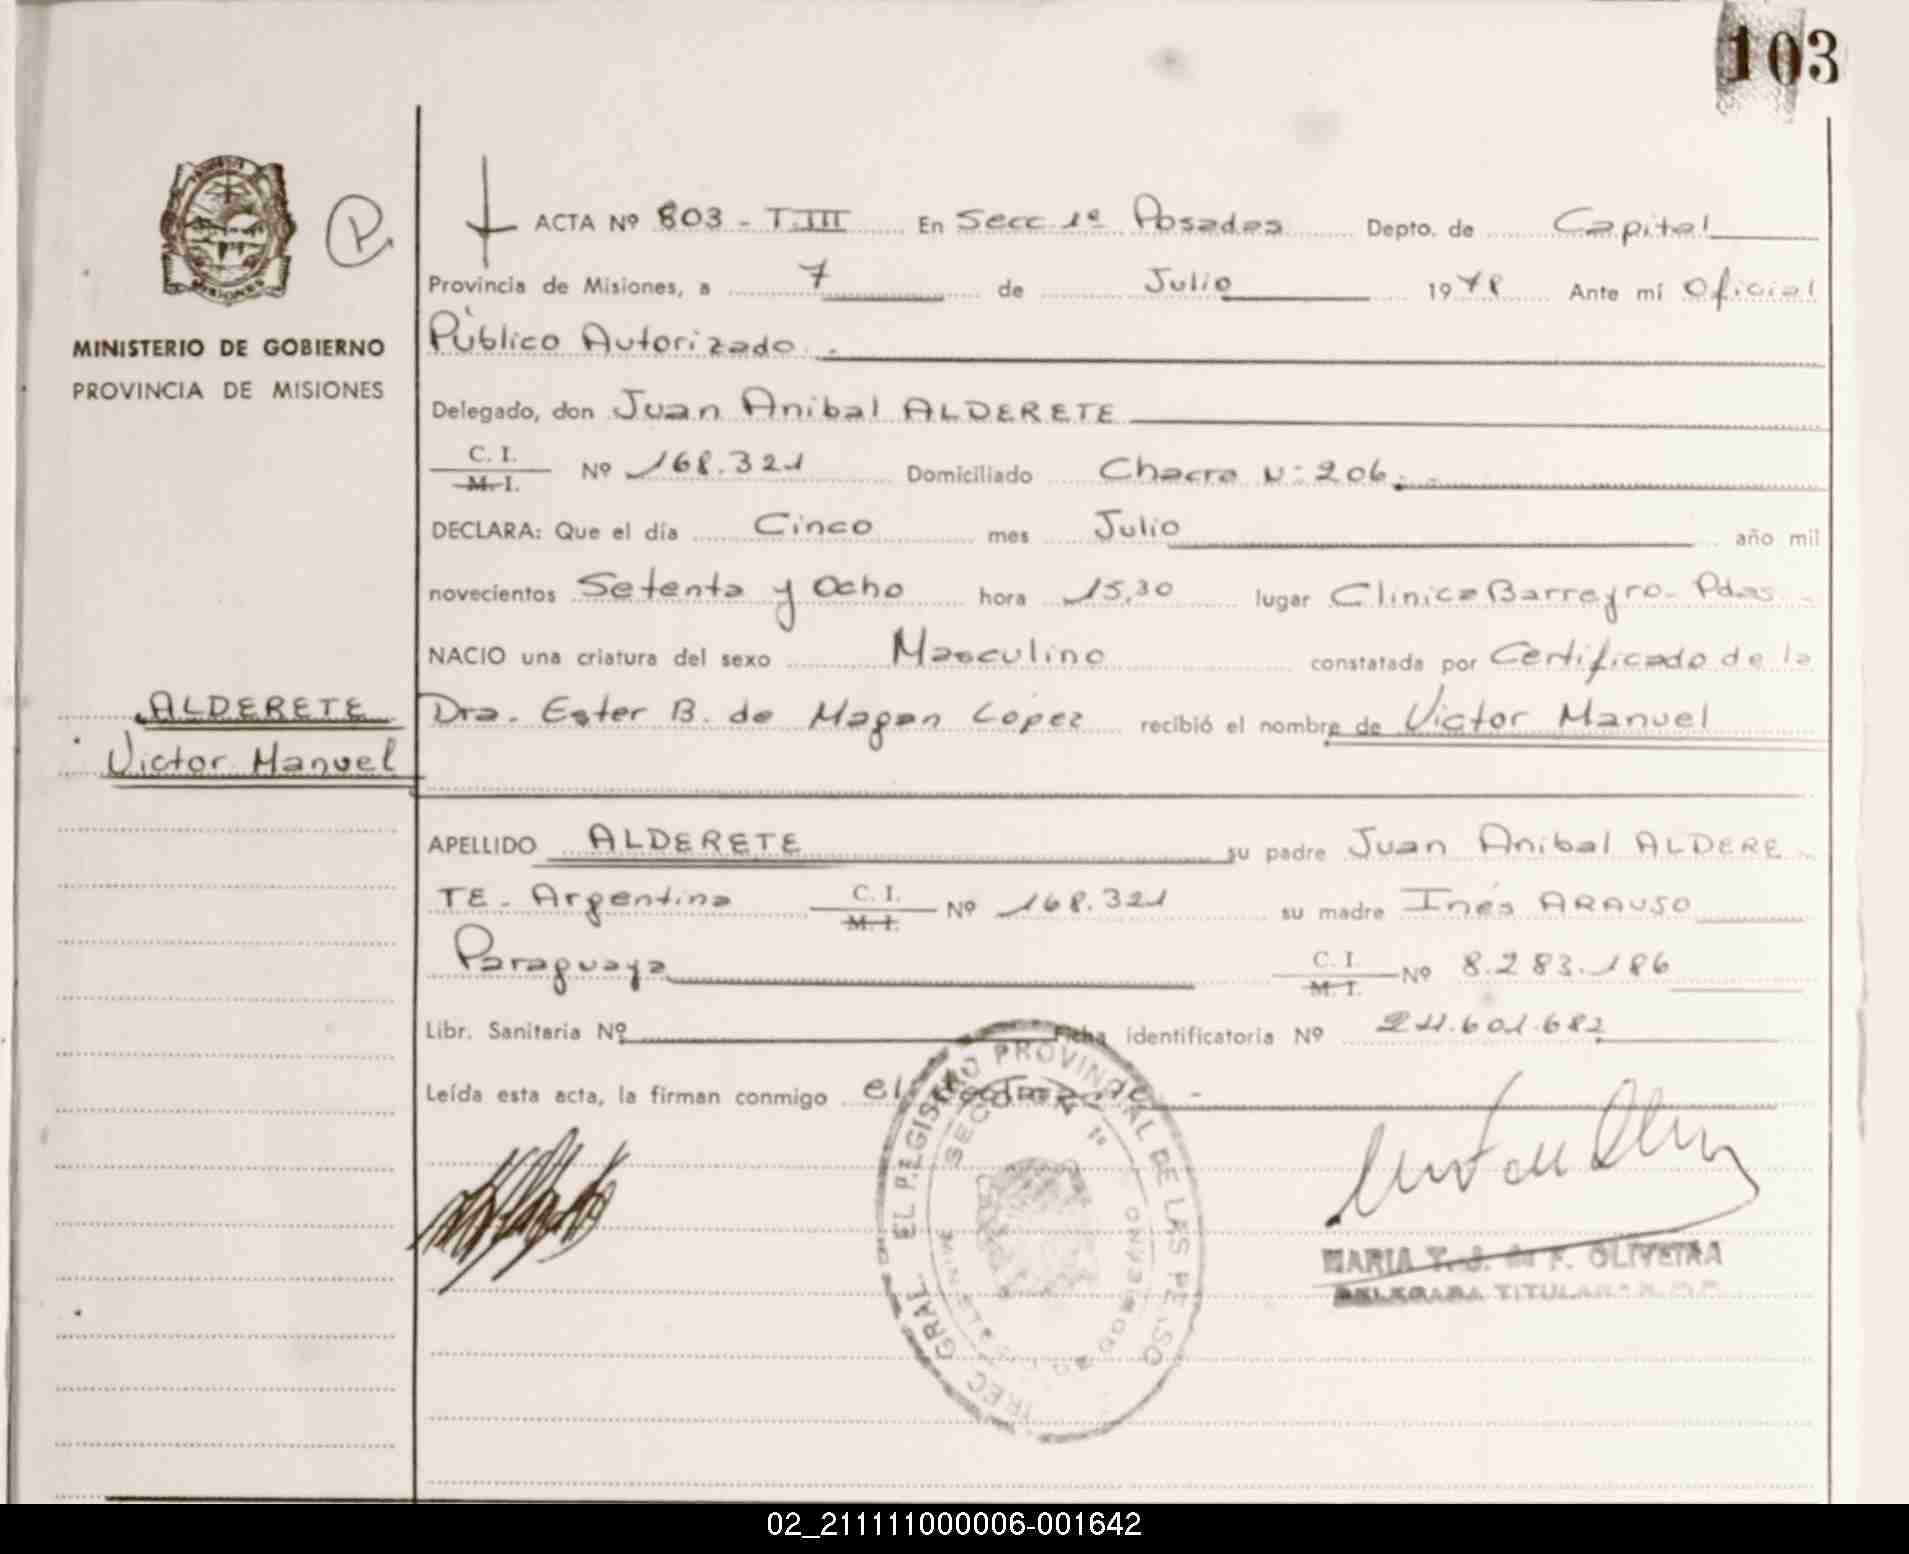 103
ACTA Nº 803 - T.III En Secc 1º Posadas Depto. de Capital
Provincia de Misiones, a 7 de Julio 1978 Ante mí Oficial
Público Autorizado.
MINISTERIO DE GOBIERNO
PROVINCIA DE MISIONES
Delegado, don Juan Anibal ALDERETE
C. I.
M. I. Nº 168.321 Domiciliado Chacra N: 206.
DECLARA: Que el día Cinco mes Julio año mil
novecientos Setenta y Ocho hora 15,30 lugar Clinica Barreyro - Pdas -
NACIO una criatura del sexo Masculino constatada por Certificado de la
ALDERETE
Victor Manuel
Dra. Ester B. de Magan Lopez recibió el nombre de Victor Manuel
APELLIDO ALDERETE su padre Juan Anibal ALDERE
TE - Argentina C. I. M. I. Nº 168.321 su madre Inés ARAUSO
Paraguaya C. I. M. I. Nº 8.283.186
Libr. Sanitaria Nº Ficha identificatoria Nº 24.601.682
Leída esta acta, la firman conmigo el
GRAL EL REGISTRO PROVINCIAL DE LAS
MARIA T. S. de F. OLIVEIRA
DELEGADA TITULAR
02_211111000006-001642